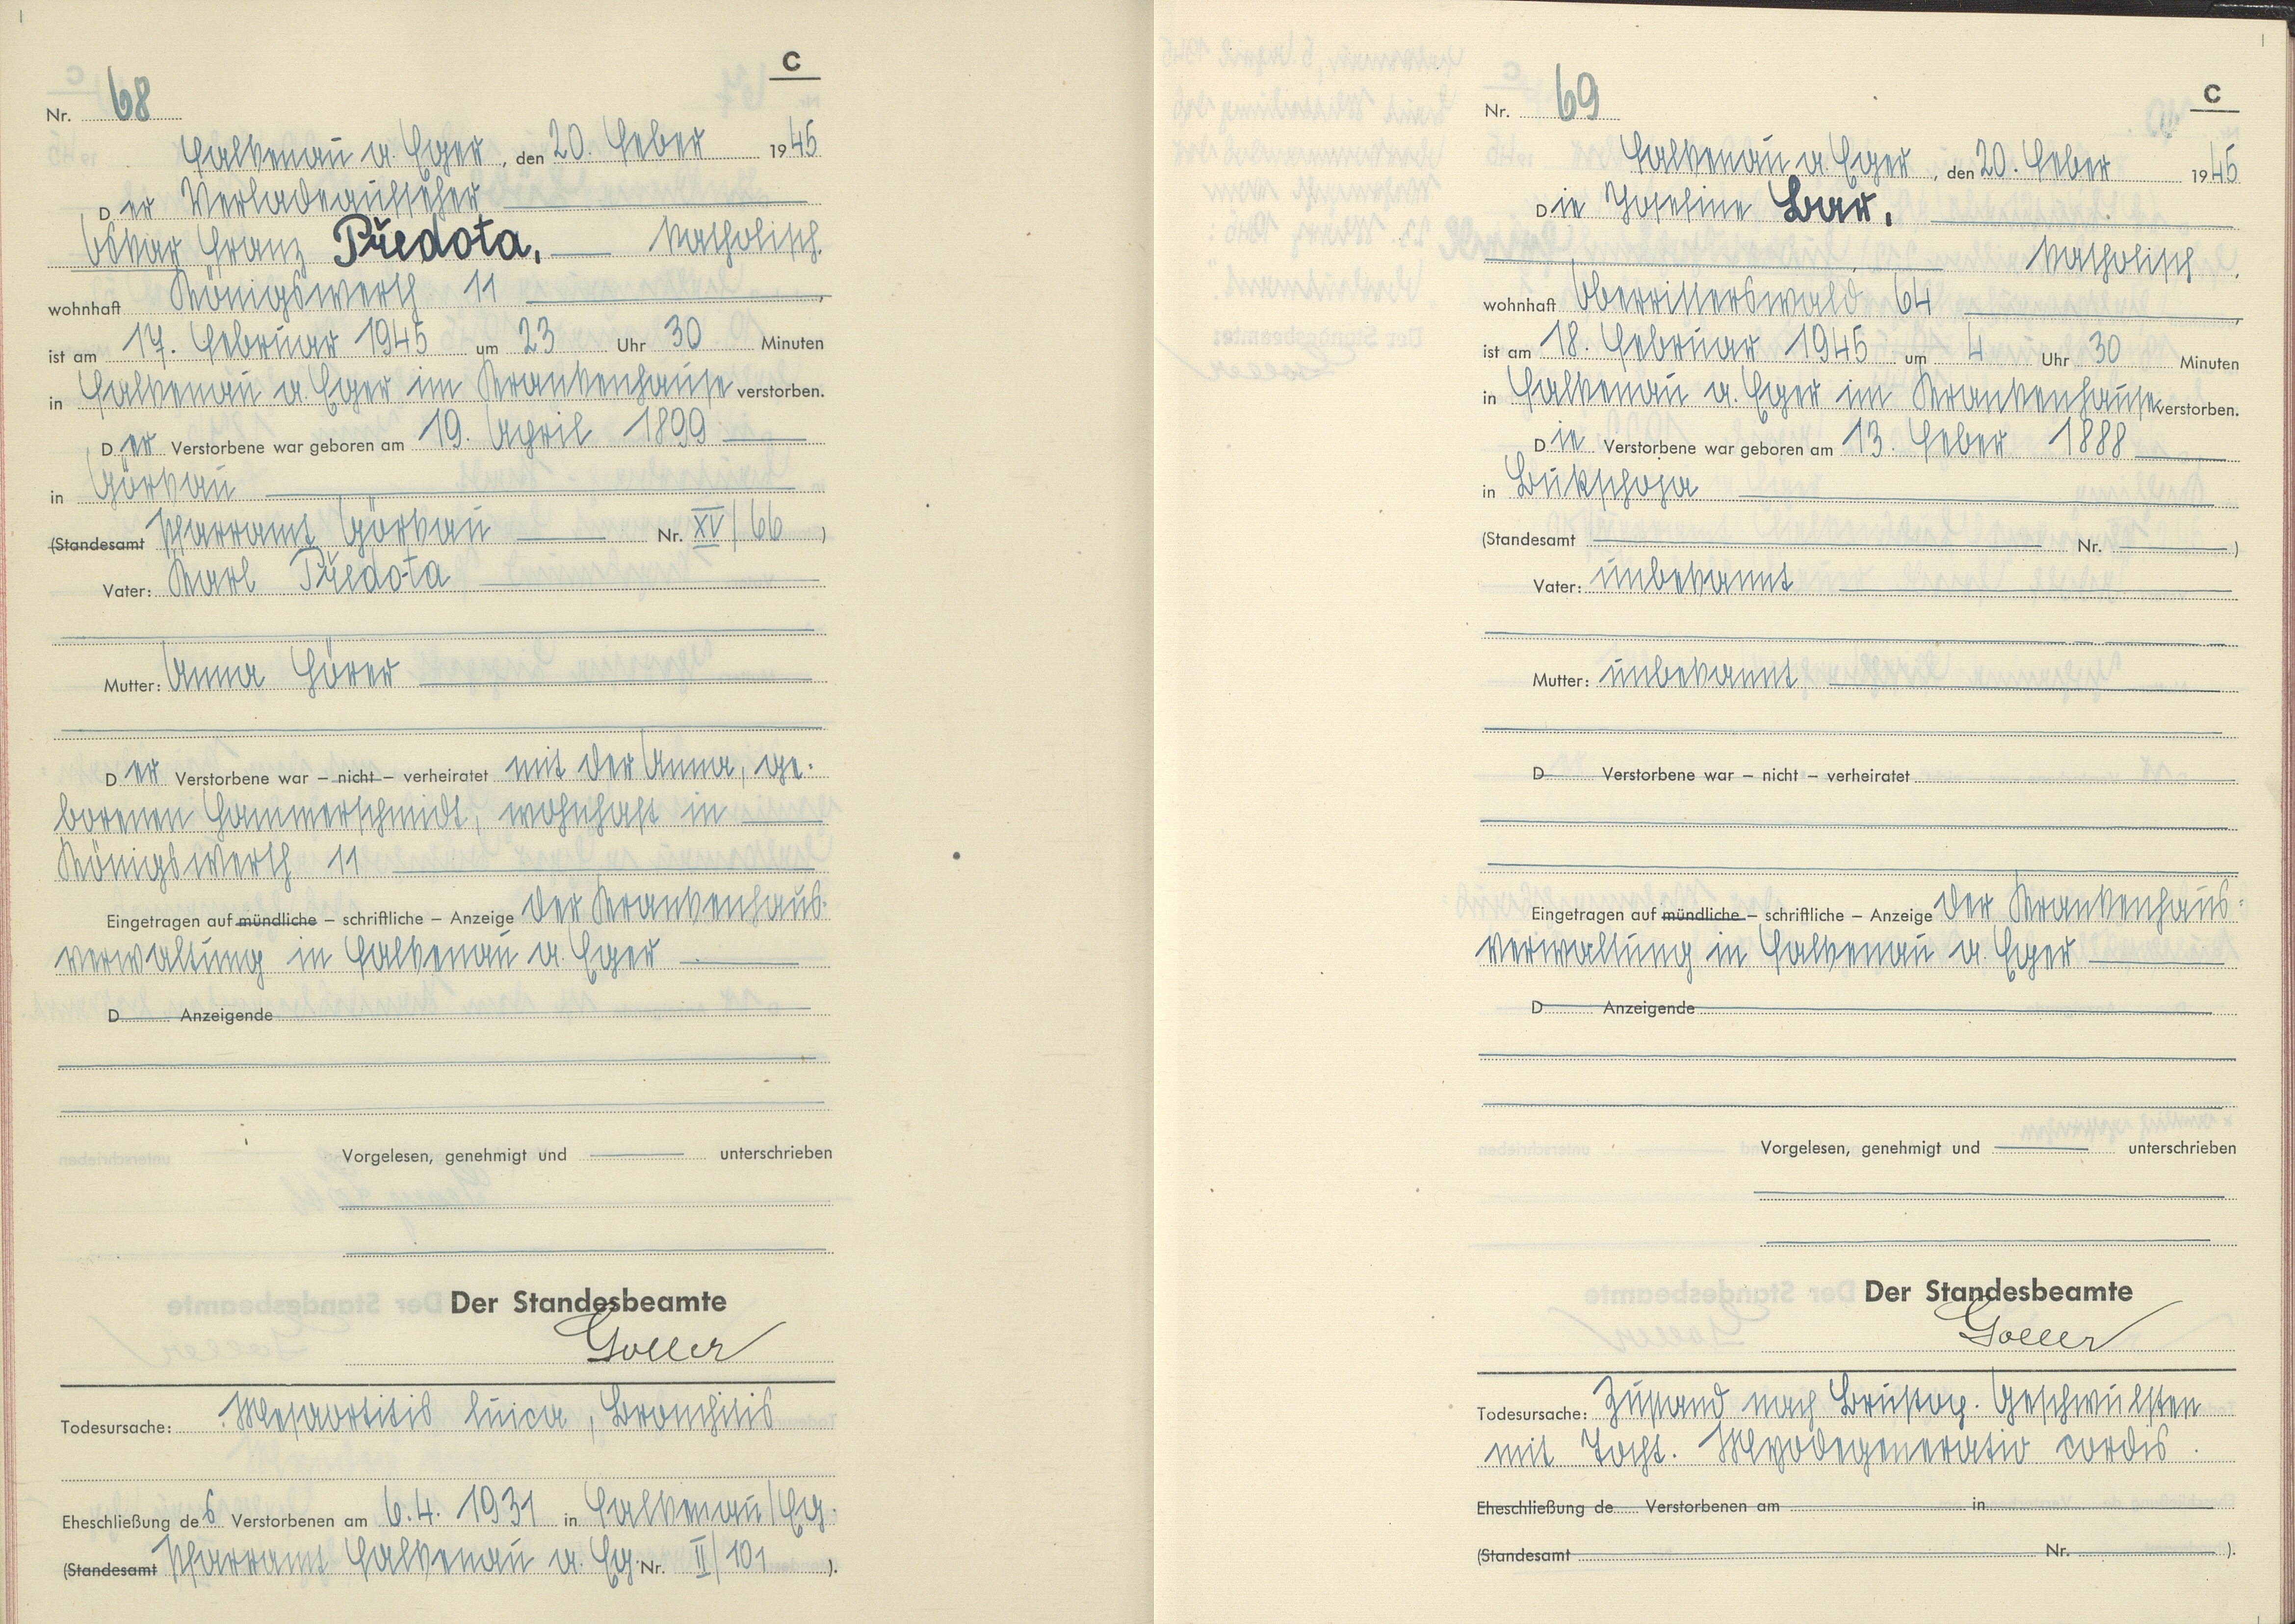 C
Nr. 68
Falkenau a. Eger, den 20. Feber 1945
Der Verladeaufseher
Oskar Franz Předota, katholisch,
wohnhaft Königswerth 11
ist am 17. Februar 1945 um 23 Uhr 30 Minuten
in Falkenau a. Eger im Krankenhause verstorben.
Der Verstorbene war geboren am 19. April 1899
in Görkau
(Standesamt Pfarramt Görkau Nr. XV/66)
Vater: Karl Předota
Mutter: Anna Hörer
Der Verstorbene war – nicht – verheiratet mit der Anna, ge-
borenen Hammerschmidt, wohnhaft in
Königswerth 11
Eingetragen auf mündliche – schriftliche – Anzeige der Krankenhaus-
verwaltung in Falkenau a. Eger
D Anzeigende
Vorgelesen, genehmigt und unterschrieben
Der Standesbeamte
Goller
Todesursache: Mesaortitis luica, Bronchitis
Eheschließung des Verstorbenen am 6.4.1931 in Falkenau/Eg.
(Standesamt Pfarramt Falkenau a. Eg. Nr. II/101).
C
Nr. 69
Falkenau a. Eger, den 20. Feber 1945
Die Josefine Bar,
katholisch,
wohnhaft Oberritterswald 64
ist am 18. Februar 1945 um 4 Uhr 30 Minuten
in Falkenau a. Eger im Krankenhause verstorben.
Die Verstorbene war geboren am 13. Feber 1888
in Bukschoja
(Standesamt Nr. )
Vater: unbekannt
Mutter: unbekannt
D Verstorbene war – nicht – verheiratet
Eingetragen auf mündliche – schriftliche – Anzeige der Krankenhaus-
verwaltung in Falkenau a. Eger
D Anzeigende
Vorgelesen, genehmigt und unterschrieben
Der Standesbeamte
Goller
Todesursache: Zustand nach Brustop. Geschwülsten
mit Jocht. Myodegeneratio cordis.
Eheschließung de Verstorbenen am in
(Standesamt Nr. ).